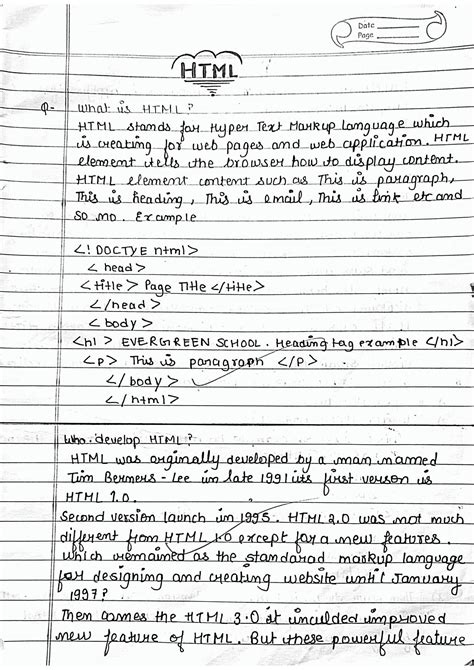 Date
Page
HTML
Q- What is HTML?
HTML stands for Hyper Text Markup language which
is creating for web pages and web application. HTML
element tells the browser how to display content.
HTML element content such as This is paragraph,
This is heading, This is email, This is link etc and
so mo. Example
<! DOCTYE html>
<head>
<title> Page Title </title>
</head>
<body>
<h1> EVERGREEN SCHOOL. Heading tag example </h1>
<P> This is paragraph </P>
</body>
</html>
Who develop HTML?
HTML was orginally developed by a man named
Tim Bermers - Lee in late 1991 its first verson is
HTML 1.0.
Second version launch in 1995. HTML 2.0 was not much
different from HTML 1.0 except for a new features.
Which remained as the standarad markup language
for designing and creating website until January
1997?
Then comes the HTML 3.0 it inculded improved
new feature of HTML. But these powerful feature